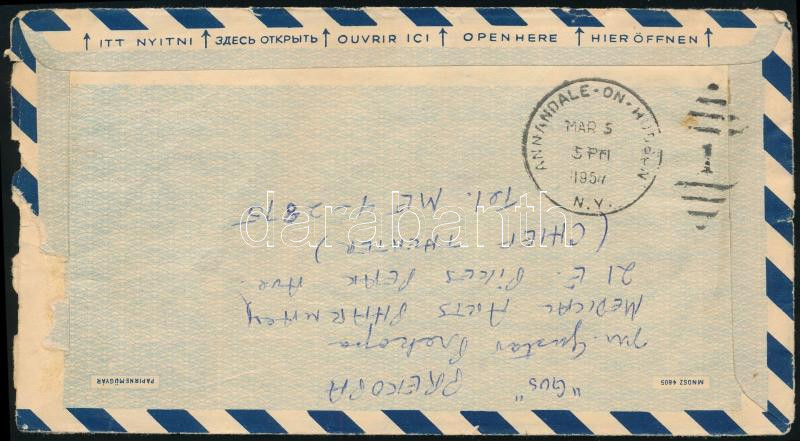 ↑ ITT NYITNI ↑ ЗДЕСЬ ОТКРЫТЬ ↑ OUVRIR ICI ↑ OPEN HERE ↑ HIER ÖFFNEN ↑
ANNANDALE-ON-HUDSON
MAR 5
5 PM
1957
N.Y.
darabanth
"GUS" PREKOPA
Mr. Gustav Prekopa
MEDICAL ARTS PHARMACY
21 E. PIKES PEAK AVE.
(CHIEF THEATER)
Tel. ME 4-2873
PAPIRNEMŰGYÁR
MNOSZ 4805